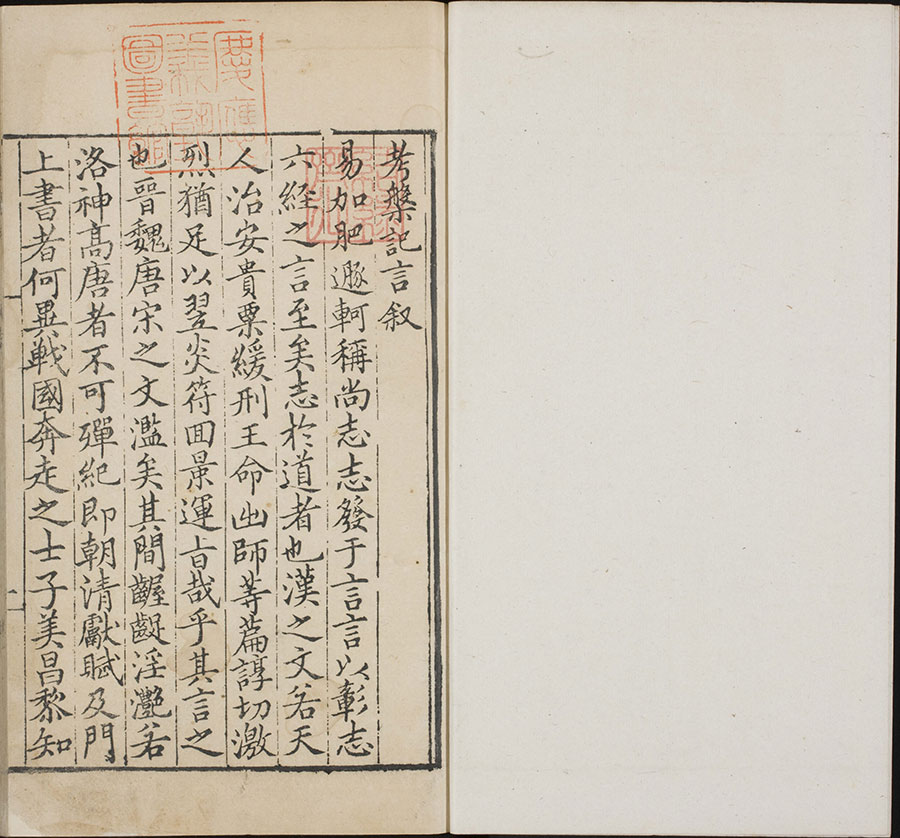 考槃記言叙
易加肥遯軻稱尚志志發于言言以彰志
六経之言至矣志於道者也漢之文若天
人治安貴粟緩刑王命出師等篇諄切激
烈猶足以翌炎符回景運旨哉乎其言之
也晉魏唐宋之文濫矣其間齷齪淫灔若
洛神高唐者不可殫紀即朝清獻賦及門
上書者何異戰國奔走之士子美昌黎知
慶應
義塾
圖書館